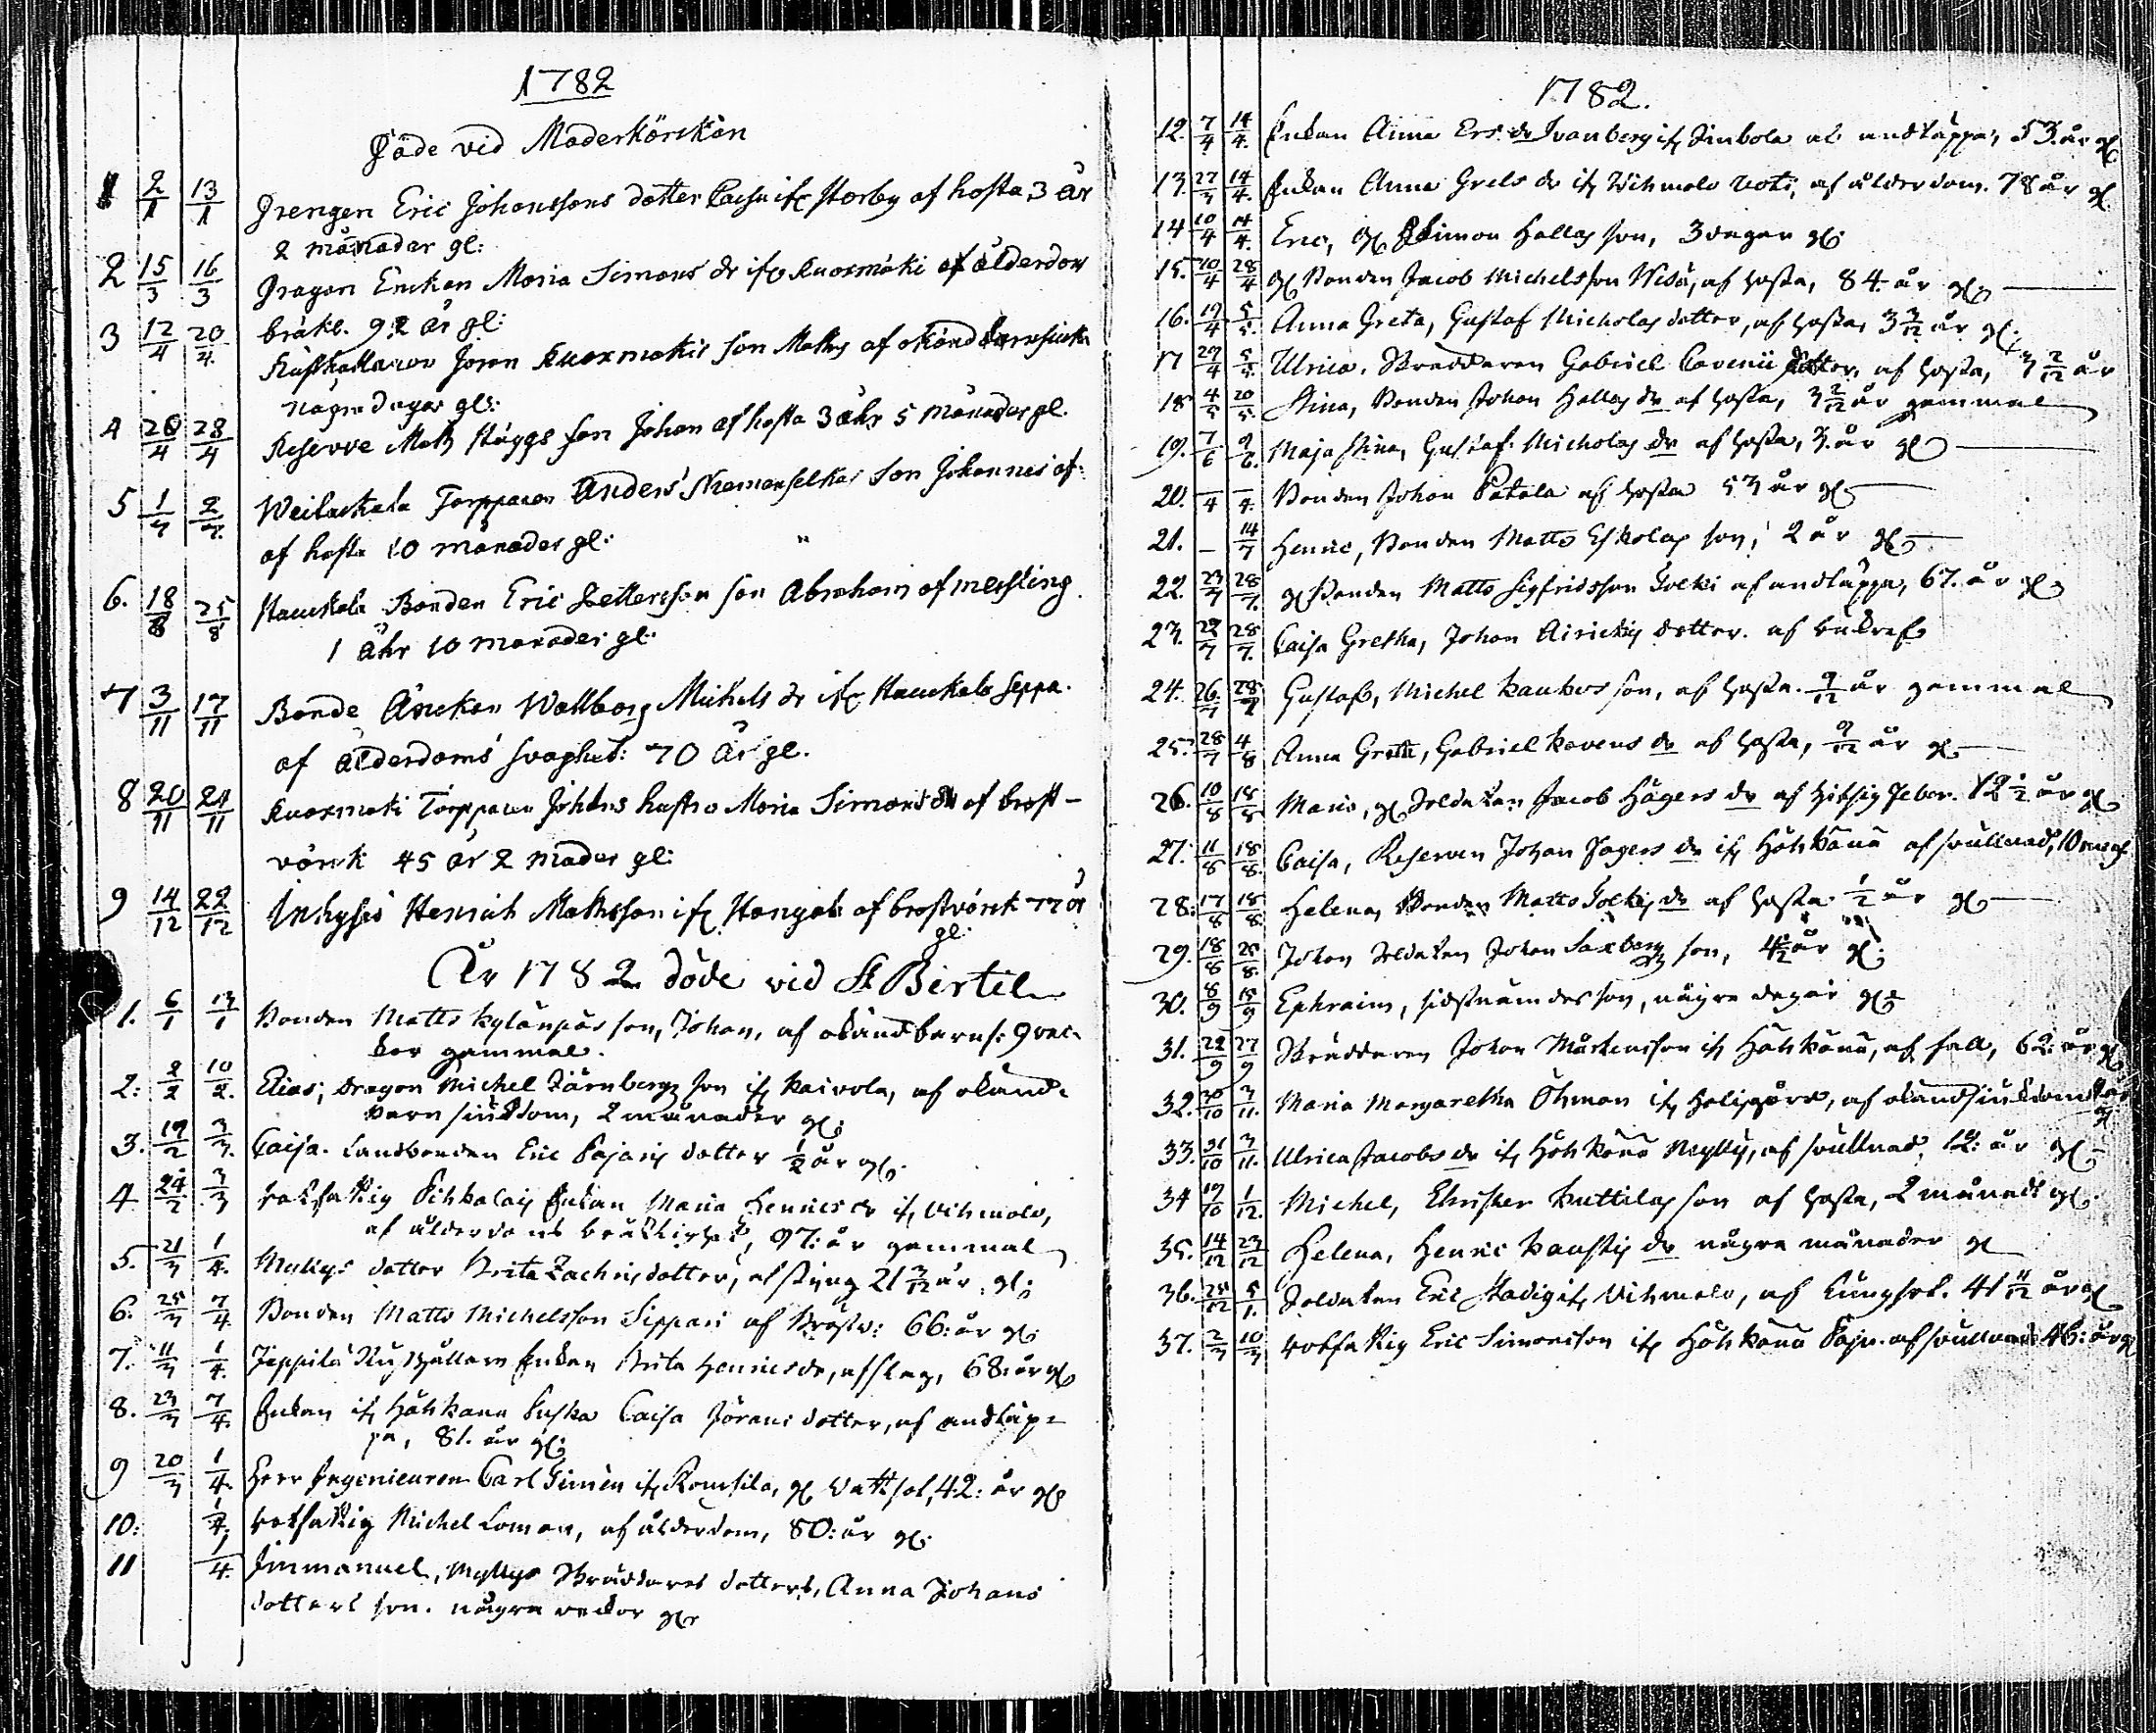 1782
Döde vid Moderkörckan
1 2/1 13/1 Drengen Eric Johanssons dotter Caisa ifr Storby af hosta 3 år
2 månader gl:
2 15/3 16/3 Dragon Enckan Maria Simons dr ifr Kuoxmäki af ålderdom
bräkl. 92 år gl:
3 12/4 20/4 Jöran Kuoxmäkis son Maths af okänd barnsiuk
några dagar gl:
4 26/4 28/4 Reserve Math Stäggs son Johan af hosta 3 åhr 5 månader gl.
5 1/7 2/7 Torpparen Anders son Johannes af
af hosta 10 månader gl:
6. 18/8 25/8 Hauckala Bonden Eric Pettersson son Abraham af messling
1 åhr 10 månader gl:
7 3/11 17/11 Bonde Änckan Wallborg Michels dr ifr Hauckala Seppä.
af ålderdoms svaghet: 70 år gl.
8 20/11 24/11 Kuoxmäki Torppare Johans hustro Maria Simons dr af bröst-
värck 45 år 2 månader gl:
9 14/12 22/12 Inhyses Henrich Mathsson ifr af bröstvärck 72 år
gl.
År 1782 döde vid St Bertel
1. 6/1 13/1 Bonden Matts Kylänpäs son, Johan, af okänd barns: 9 vec-
kor gammal.
2: 2/2 10/2. Elias, Dragon Michel Järnbergs son ifr Kaivola, af okänd
barnsiukdom, 2 månader gl:
3. 19/2 3/3. Caisa. Landbonden Eric Pajaris dotter 1/2 år gl:
4 24/2 3/3 Rotfattig Pihkalais Enkan Maria Henrics dr ifr Vihmalo,
af ålderdoms bräcklighet, 97: år gammal
5. 21/3 1/4. Myllys dotter Brita Zachris dotter, af styng 21 3/12 år, gl:
6. 25/3 7/4 Bonden Matts Michelsson Sippari af Bröstv: 66: år gl:
7. 11/3 1/4 Jeppilä Enkan Brita Henrics dr, af slag, 68: år gl:
8. 23/3 7/4. Enkan ifr Håhkana Puska Caisa Jörans dotter, af andtäp-
pa, 81. år gl:
9 20/3 1/4. Herr Ingenieuren Carl ifr gl Vattsot, 42: år gl
10: 1/4. Rotfattig Michel Loman, af ålderdom, 80: år gl:
11 1/4. Immanuel, Myllys Skräddares dotters, Anna Johans
dotters son. några veckor gl:
1782.
12. 7/4 14/4. Enkan Anna Ers dr Svanberg ifr Simbola af andtäppa, 53. år gl
13. 27/3 14/4. Enkan Anna Grels dr ifr Wihmalo roti, af ålderdom. 78 år gl.
14 10/4 14/4. Eric, gl Simon Hallas son, 3 dagar gl:
15. 20/4 28/4 gl Bonden Jacob Michelsson Wida, af hosta, 84. år gl:
16. 19/4 5/5. Anna Greta, Gustaf Micholas dotter, af hosta, 3 3/12 år gl.
17 29/4 5/5. Ulrica. Skräddaren Gabriel Cavenii dotter, af hosta, 3 2/12 år
18 4/5 20/5. Stina, Bonden Johan Hallas dr af hosta, 3 2/12 år gammal
19. 7/6 9/6. Maja Stina, Gustaf Micholas dr af hosta, 3. år gl
20. –/4 –/4. Bonden Johan Patala af hosta 53 år gl
21. – 14/7 Henric, Bonden Matts Eskolas son, 2 år gl:
22. 23/7 28/7. gl Bonden Matts Sigfridsson Jolki af andtäppa, 67. år gl
23. 22/7 28/7. Caisa Gretha, Johan Airickis dotter. af bukref
24. 26/7 28/7 Gustaf, Michel Kaukos son, af hosta. 9/12 år gammal
25. 28/7 4/8 Anna Greta, Gabriel Kavens dr af hosta, 9/12 år gl
26. 10/8 18/8 Maria, gl Soldaten Jacob Hägers dr af hitsig feber. 12 1/2 år gl
27. 11/8 18/8. Caisa, Reserven Johan Fagers dr ifr Håhkana af svullnad,
28. 17/8 18/8. Helena, Bonden Matts Jolkis dr af hosta 1/2 år gl
29. 18/8 25/8. Johan Soldaten Johan Saxbergs son, 4 1/2 år gl:
30. 8/9 15/9 Ephraim, sidstnämdes son, några dagar gl:
31. 22/9 27/9 Skräddaren Johan Mårtensson ifr Håhkana, af fall, 62: år gl
32. 20/10 3/11. Maria Margaretha Öhman ifr af okänd siukdom
gl
33. 31/10 3/11. Ulrica Jacobs dr ifr Håhkana Myllys, af svullnad, 12: år gl.
34 19/10 1/12. Michel, Christer Kuttilas son af hosta, 2 månad gl.
35. 14/12 23/12 Helena, Henric Kaustis dr några månader gl
36. 25/12 5/1. Soldaten Eric Stadig ifr Vihmalo, af Lungsot. 41 11/12 år gl
37. 2/3 10/3 Rotfattig Eric Simonsson ifr Håhkana af svullnad 46: år gl